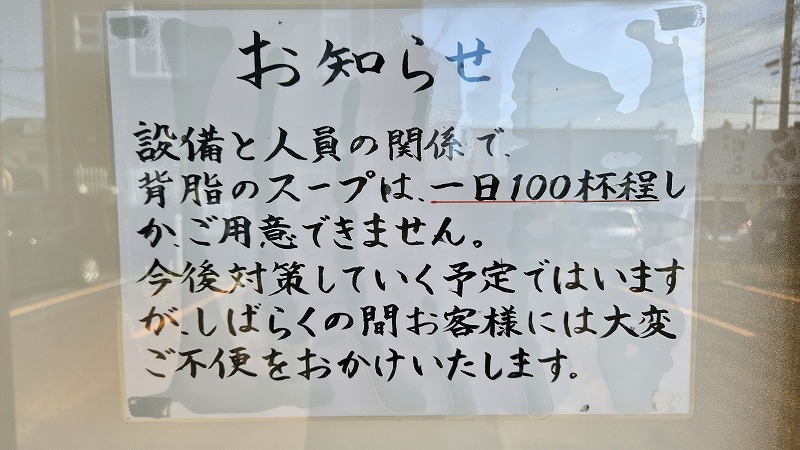 お知らせ
設備と人員の関係で、
背脂のスープは、一日100杯程し
か、ご用意できません。
今後対策していく予定ではいます
が、しばらくの間お客様には大変
ご不便をおかけいたします。